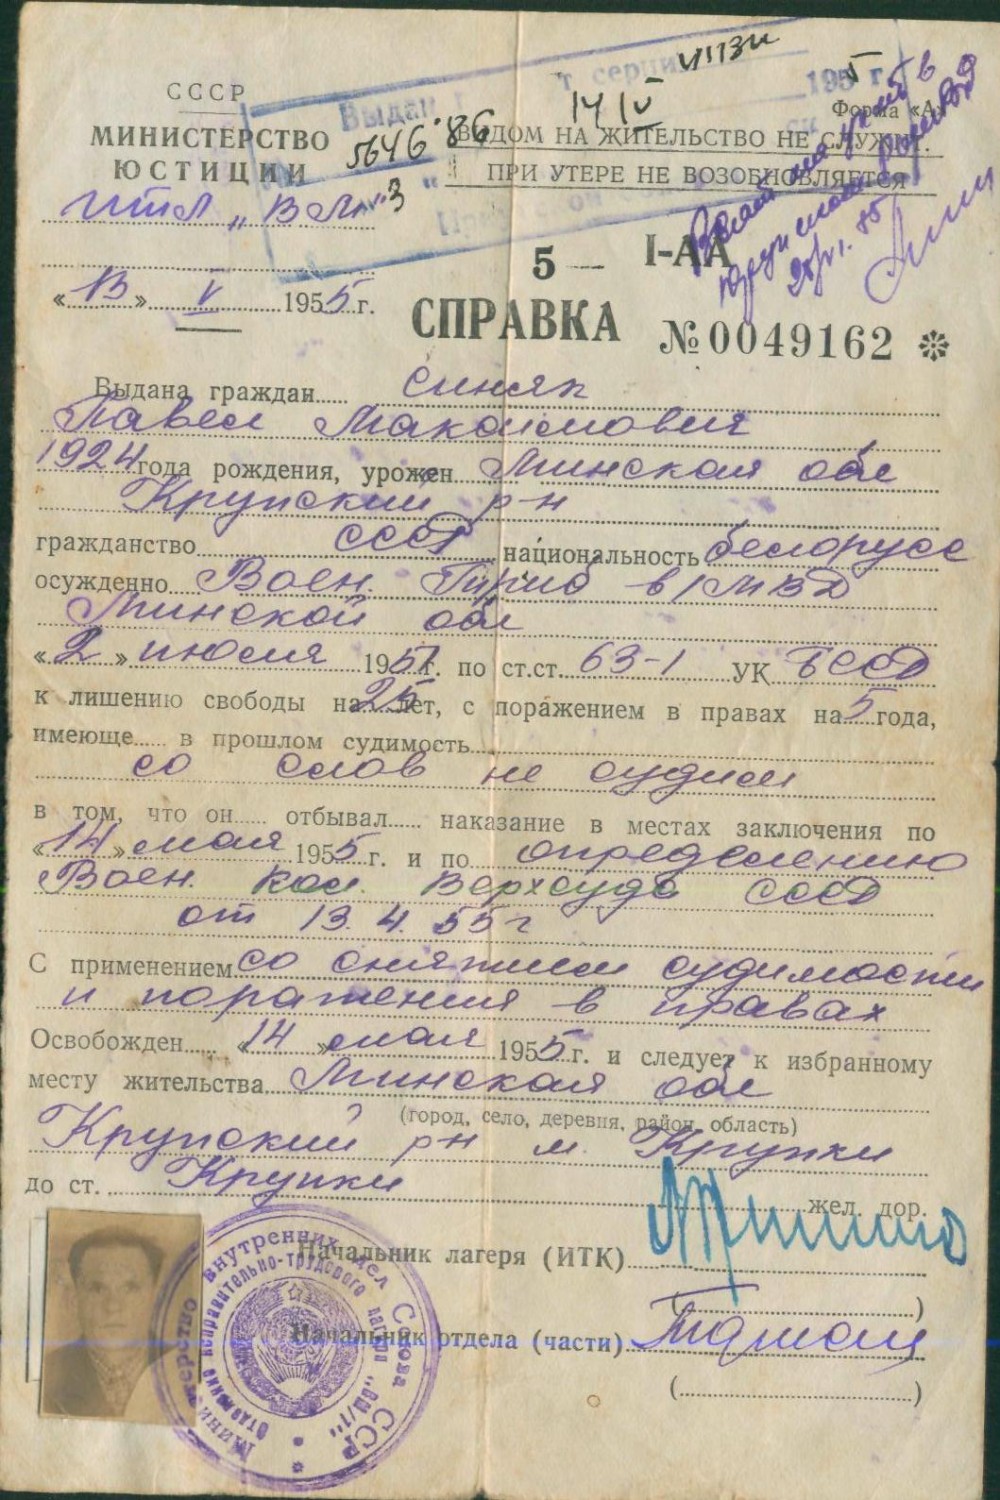 СССР
МИНИСТЕРСТВО
ЮСТИЦИИ
Выдан
195 г.
5646 86
14 IV
Форма «А»
ВИДОМ НА ЖИТЕЛЬСТВО НЕ СЛУЖИТ.
ПРИ УТЕРЕ НЕ ВОЗОБНОВЛЯЕТСЯ
ИТЛ „ВМ"
5 — I-АА
«13» V 1955 г.
СПРАВКА № 0049162
Выдана граждан Синяк
Павел Максимович
1924 года рождения, урожен Минской обл
Крупский р-н
гражданство СССР национальность белорусс
осужденно Воен. Триб в/МВД
Минской обл
«2» июля 1951 г. по ст.ст. 63-1 УК БССР
к лишению свободы на 25 лет, с поражением в правах на 5 года,
имеюще в прошлом судимость
со слов не судим
в том, что он отбывал наказание в местах заключения по
«14» мая 1955 г. и по определению
Воен. кол. Верхсуда СССР
от 13.4.55 г
С применением со снятием судимости
и поражения в правах
Освобожден «14» мая 1955 г. и следует к избранному
месту жительства Минская обл
(город, село, деревня, район, область)
Крупский р-н м. Крупки
до ст. Крупки жел. дор.
Начальник лагеря (ИТК)
( )
Начальник отдела (части)
( )
Министерство внутренних дел Союза ССР
Отделение исправительно-трудового лагеря